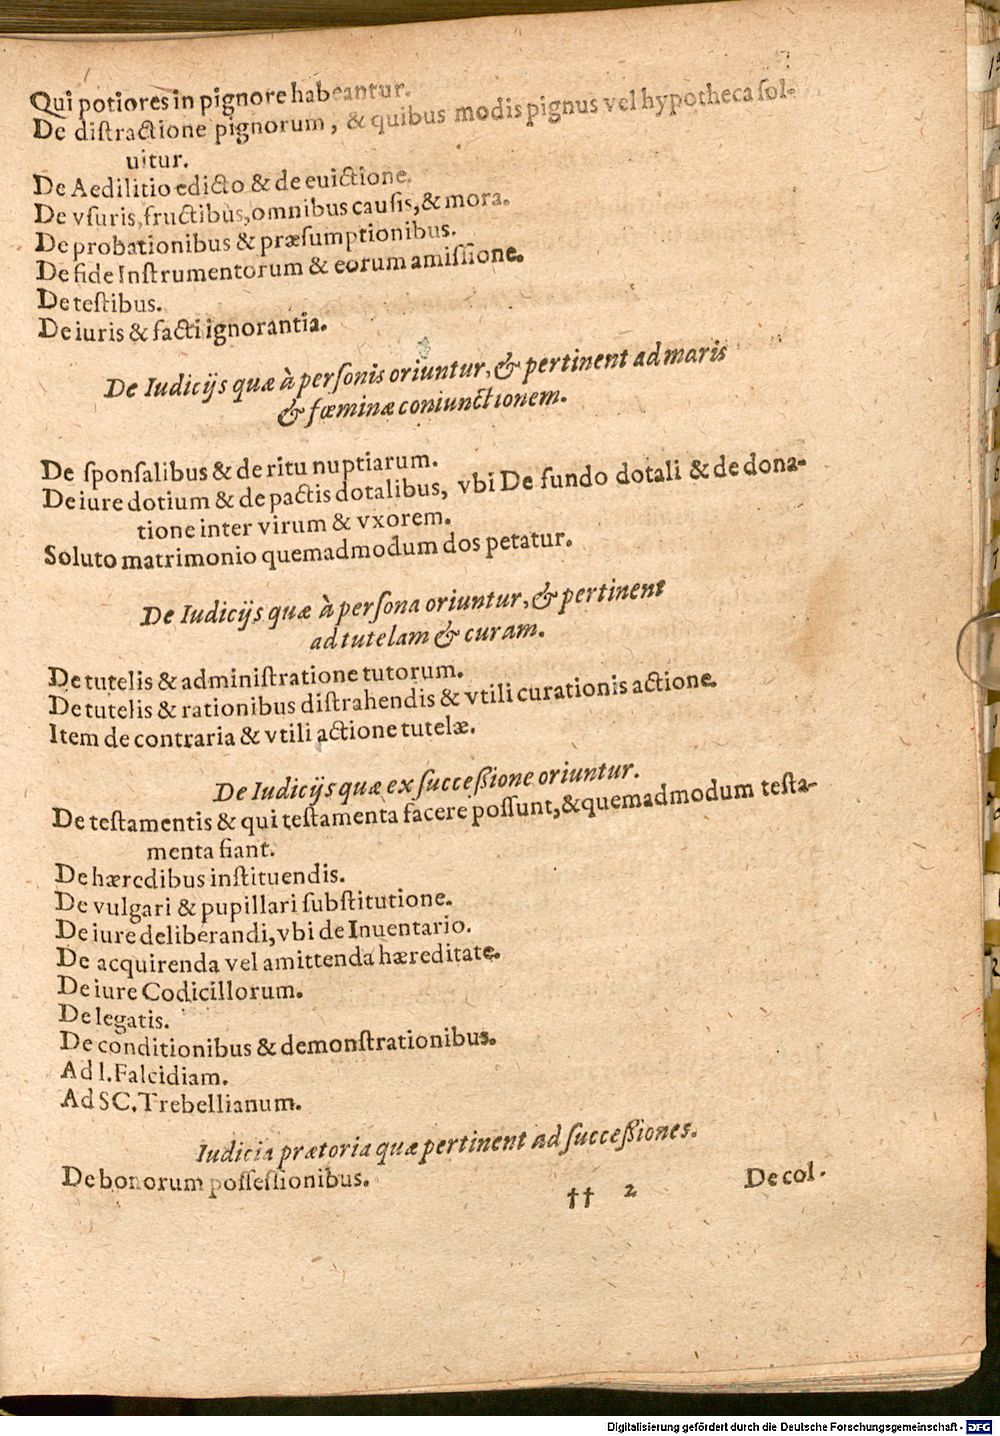 Qui potiores in pignore habeantur.
De distractione pignorum, & quibus modis pignus vel hypotheca sol-
uitur.
De Aedilitio edicto & de euictione.
De vsuris, fructibus, omnibus causis, & mora.
De probationibus & præsumptionibus.
De fide Instrumentorum & eorum amissione.
De testibus.
De iuris & facti ignorantia.
De Iudicijs quæ à personis oriuntur, & pertinent ad maris
& fœminæ coniunctionem.
De sponsalibus & de ritu nuptiarum.
De iure dotium & de pactis dotalibus, vbi De fundo dotali & de dona-
tione inter virum & vxorem.
Soluto matrimonio quemadmodum dos petatur.
De Iudicijs quæ à persona oriuntur, & pertinent
ad tutelam & curam.
De tutelis & administratione tutorum.
De tutelis & rationibus distrahendis & vtili curationis actione.
Item de contraria & vtili actione tutelæ.
De Iudicijs quæ ex successione oriuntur.
De testamentis & qui testamenta facere possunt, & quemadmodum testa-
menta fiant.
De hæredibus instituendis.
De vulgari & pupillari substitutione.
De iure deliberandi, vbi de Inuentario.
De acquirenda vel amittenda hæreditate.
De iure Codicillorum.
De legatis.
De conditionibus & demonstrationibus.
Ad l. Falcidiam.
Ad SC. Trebellianum.
Iudicia prætoria quæ pertinent ad successiones.
De bonorum possessionibus.
†† 2 De col-
Digitalisierung gefördert durch die Deutsche Forschungsgemeinschaft - DFG